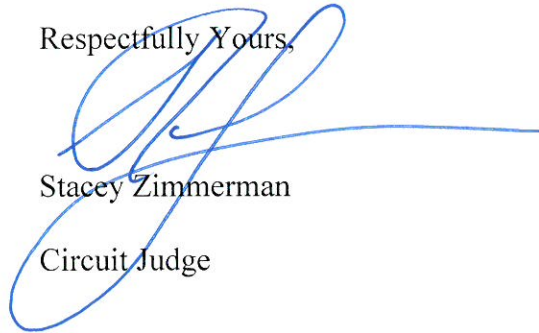 Respectfully Yours,
Stacey Zimmerman
Circuit Judge